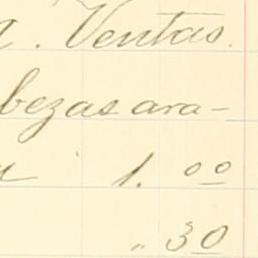 a. Ventas.
bezas ara-
1.00
" 30